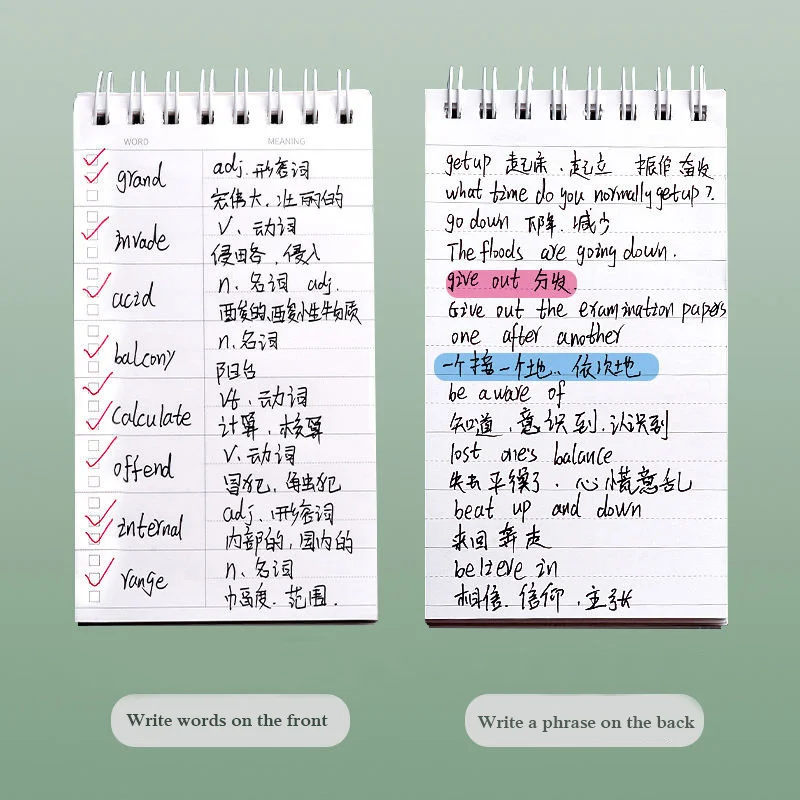 WORD MEANING
grand adj. 形容词
宏伟大、壮丽的
invade v. 动词
侵略,侵入
acid n. 名词 adj.
酸的、酸性物质
balcony n. 名词
阳台
Calculate vt. 动词
计算、核算
offend v. 动词
冒犯、触犯
internal adj. 形容词
内部的,国内的
range n. 名词
幅度、范围.
get up 起床、起立 振作奋发
what time do you normally get up?
go down 下降、减少
The floods are going down.
give out 分发.
Give out the examination papers
one after another
一个接一个地、依次地
be aware of
知道,意识到、认识到
lost one's balance
失去平衡了、心慌意乱
beat up and down
来回奔走
believe in
相信、信仰、主张
Write words on the front
Write a phrase on the back